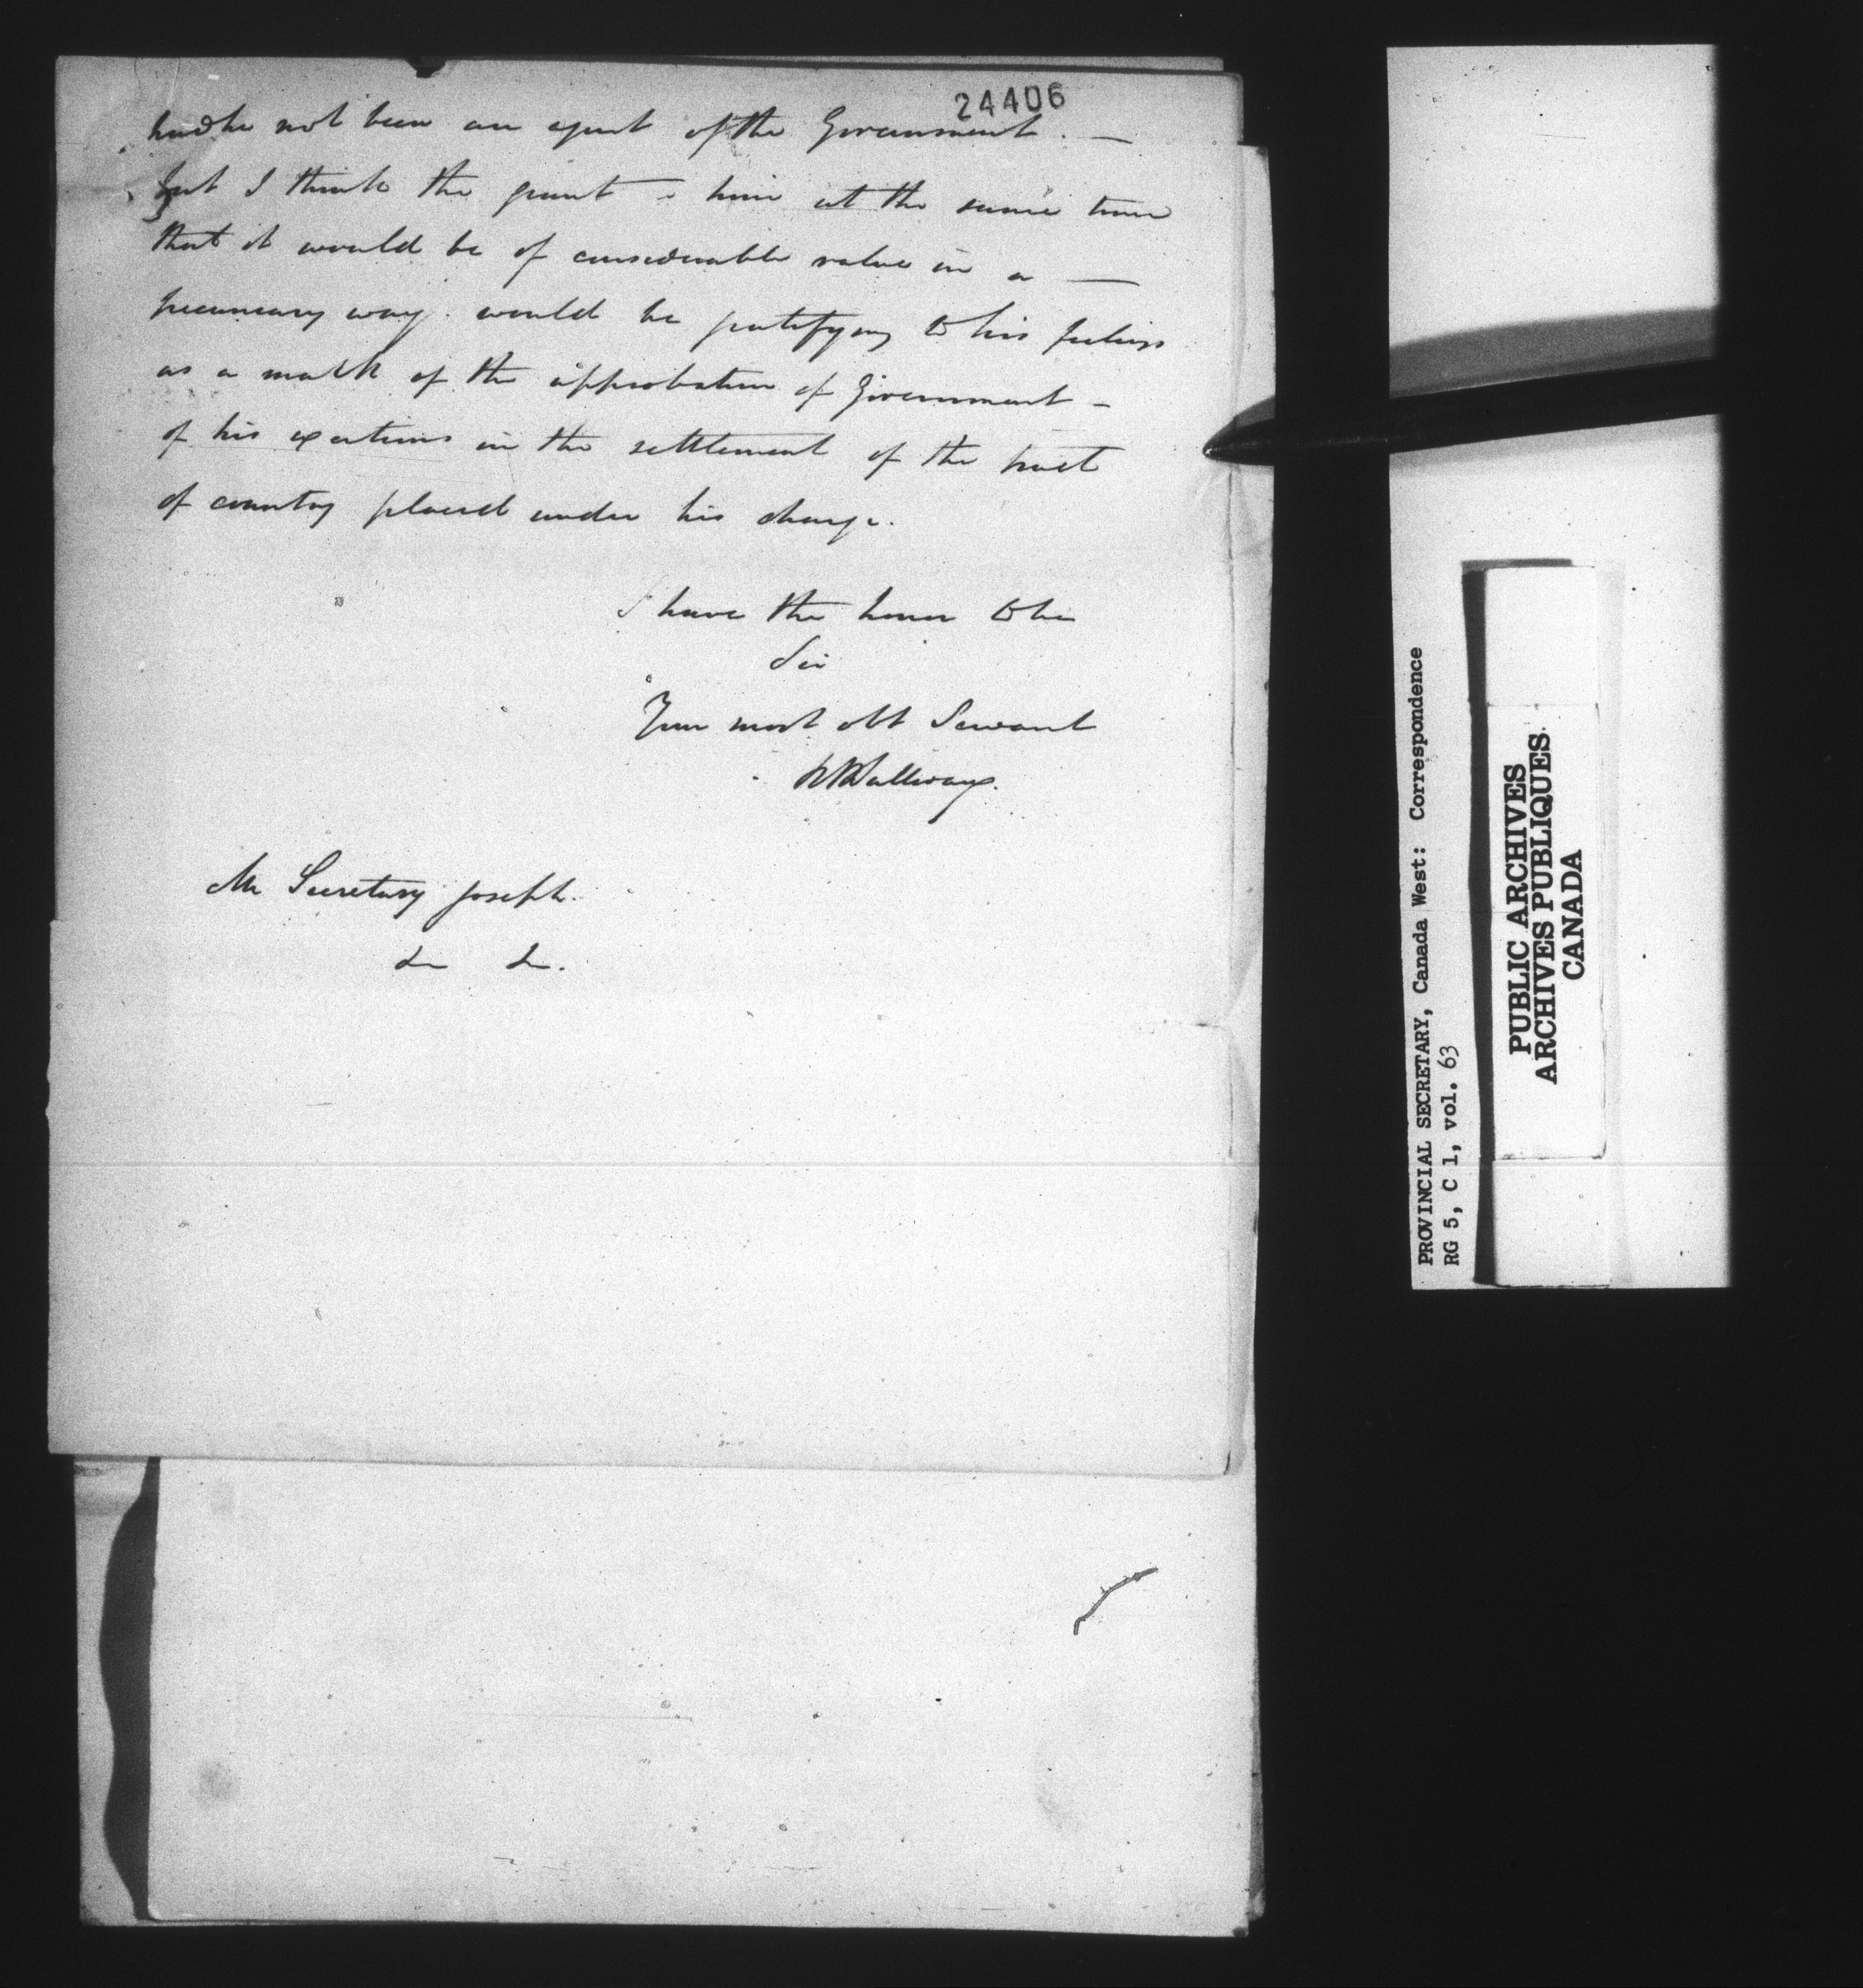 24406
had he not been an agent of the Government. —
but I think the grant to him at the same time
that it would be of considerable value in a —
pecuneary way. would be gratifying to his feelings
as a mark of the approbation of Government —
of his exertions in the settlement of the tract
of country placed under his charge.
I have the honor to be
Sir
Your most obt Servant
Mr Secretary Joseph.
&c &c.
PROVINCIAL SECRETARY, Canada West: Correspondence
RG 5, C 1, vol. 63
PUBLIC ARCHIVES
ARCHIVES PUBLIQUES
CANADA